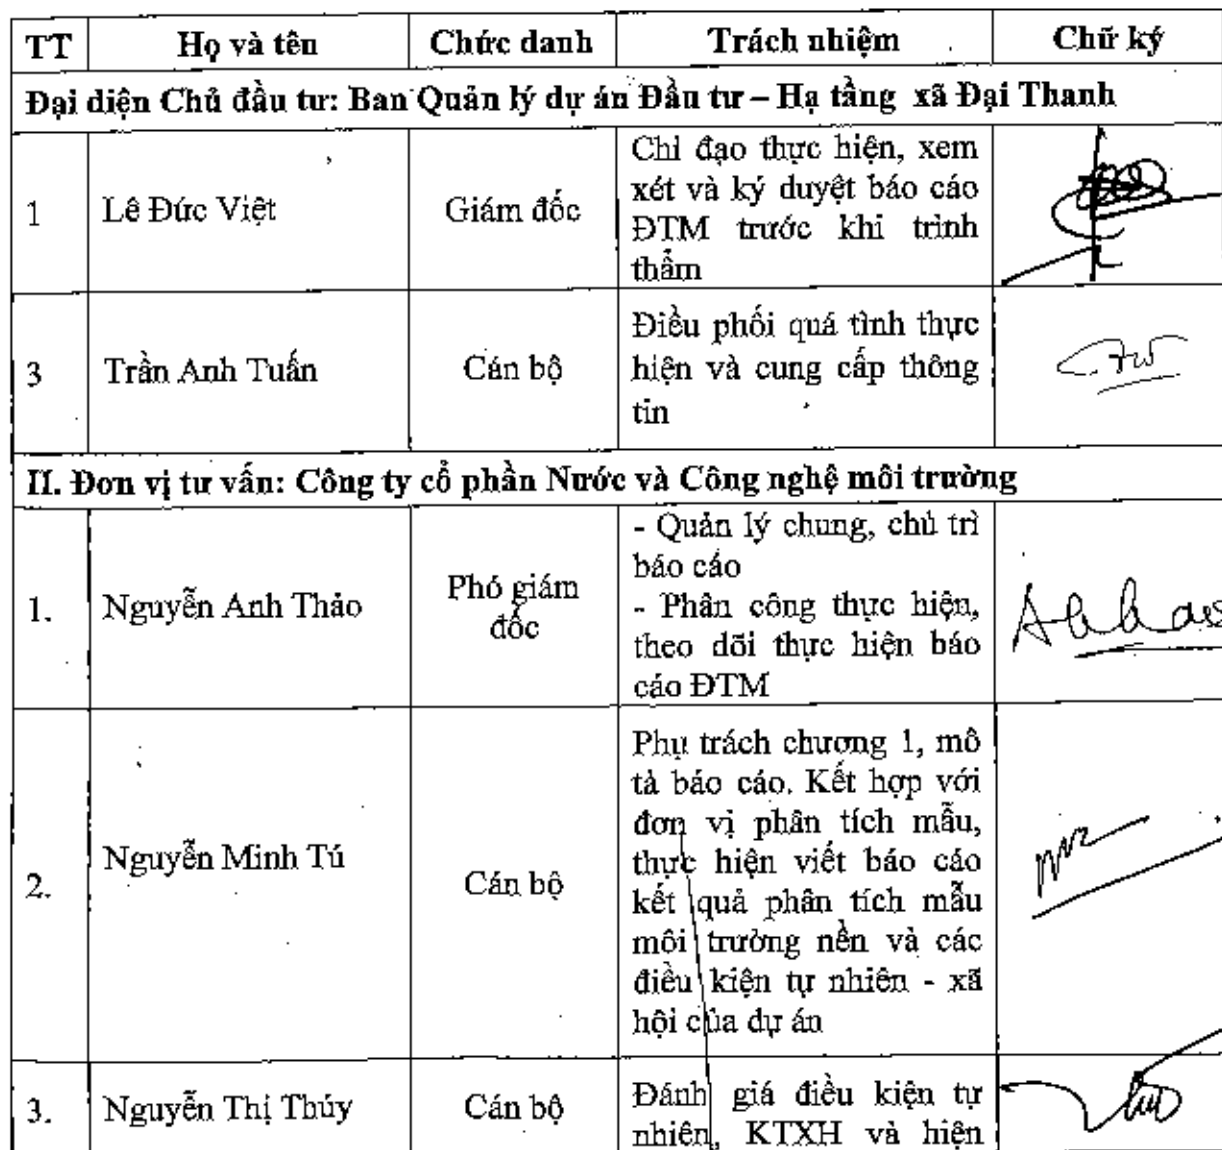 TT Họ và tên Chức danh Trách nhiệm Chữ ký
Đại diện Chủ đầu tư: Ban Quản lý dự án Đầu tư – Hạ tầng xã Đại Thanh
1 Lê Đức Việt Giám đốc
Chỉ đạo thực hiện, xem
xét và ký duyệt báo cáo
ĐTM trước khi trình
thẩm
3 Trần Anh Tuấn Cán bộ
Điều phối quá tình thực
hiện và cung cấp thông
tin
II. Đơn vị tư vấn: Công ty cổ phần Nước và Công nghệ môi trường
1. Nguyễn Anh Thảo
Phó giám
đốc
- Quản lý chung, chủ trì
báo cáo
- Phân công thực hiện,
theo dõi thực hiện báo
cáo ĐTM
2. Nguyễn Minh Tú Cán bộ
Phụ trách chương 1, mô
tả báo cáo. Kết hợp với
đơn vị phân tích mẫu,
thực hiện viết báo cáo
kết quả phân tích mẫu
môi trường nền và các
điều kiện tự nhiên - xã
hội của dự án
3. Nguyễn Thị Thúy Cán bộ
Đánh giá điều kiện tự
nhiên, KTXH và hiện